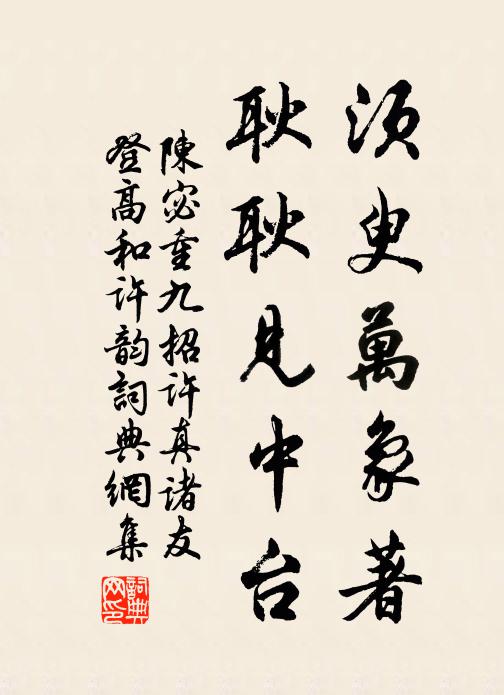 須臾萬象著
耿耿見中台
陳宓重九招許真諸友
登高和許韵詞典網集
詞典网印